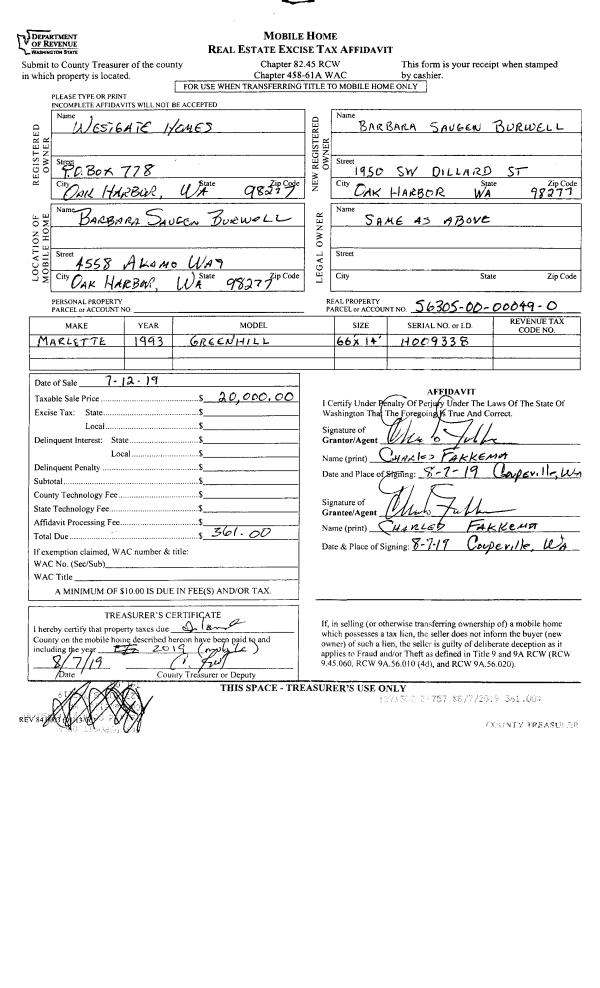 DEPARTMENT
OF REVENUE
WASHINGTON STATE
MOBILE HOME
REAL ESTATE EXCISE TAX AFFIDAVIT
Submit to County Treasurer of the county
in which property is located.
Chapter 82.45 RCW
Chapter 458-61A WAC
This form is your receipt when stamped
by cashier.
FOR USE WHEN TRANSFERRING TITLE TO MOBILE HOME ONLY
PLEASE TYPE OR PRINT
INCOMPLETE AFFIDAVITS WILL NOT BE ACCEPTED
REGISTERED OWNER
Name
WESTGATE HOMES
Street
P.O. BOX 778
City State Zip Code
OAK HARBOR, WA 98277
NEW REGISTERED OWNER
Name
BARBARA SAUGEN BURWELL
Street
1950 SW DILLARD ST
City State Zip Code
OAK HARBOR WA 98277
LOCATION OF MOBILE HOME
Name
BARBARA SAUGEN BURWELL
Street
4558 ALAMO WAY
City State Zip Code
OAK HARBOR, WA 98277
LEGAL OWNER
Name
SAME AS ABOVE
Street
City State Zip Code
PERSONAL PROPERTY
PARCEL or ACCOUNT NO.
REAL PROPERTY
PARCEL or ACCOUNT NO. S6305-00-00049-0
MAKE YEAR MODEL SIZE SERIAL NO. or I.D. REVENUE TAX CODE NO.
MARLETTE 1993 GREENHILL 66X14' H009338
Date of Sale 7-12-19
Taxable Sale Price $ 20,000.00
Excise Tax: State $
Local $
Delinquent Interest: State $
Local $
Delinquent Penalty $
Subtotal $
County Technology Fee $
State Technology Fee $
Affidavit Processing Fee $
Total Due $ 361.00
If exemption claimed, WAC number & title:
WAC No. (Sec/Sub)
WAC Title
A MINIMUM OF $10.00 IS DUE IN FEE(S) AND/OR TAX.
AFFIDAVIT
I Certify Under Penalty Of Perjury Under The Laws Of The State Of
Washington That The Foregoing Is True And Correct.
Signature of
Grantor/Agent
Name (print) CHARLES FAKKEMA
Date and Place of Signing: 8-7-19 Coupeville, WA
Signature of
Grantee/Agent
Name (print) CHARLES FAKKEMA
Date & Place of Signing: 8-7-19 Coupeville, WA
TREASURER'S CERTIFICATE
I hereby certify that property taxes due Island
County on the mobile home described hereon have been paid to and
including the year 2019
8/7/19
Date County Treasurer or Deputy
If, in selling (or otherwise transferring ownership of) a mobile home
which possesses a tax lien, the seller does not inform the buyer (new
owner) of such a lien, the seller is guilty of deliberate deception as it
applies to Fraud and/or Theft as defined in Title 9 and 9A RCW (RCW
9.45.060, RCW 9A.56.010 (4d), and RCW 9A.56.020).
THIS SPACE - TREASURER'S USE ONLY
8/7/2019 361.00
COUNTY TREASURER